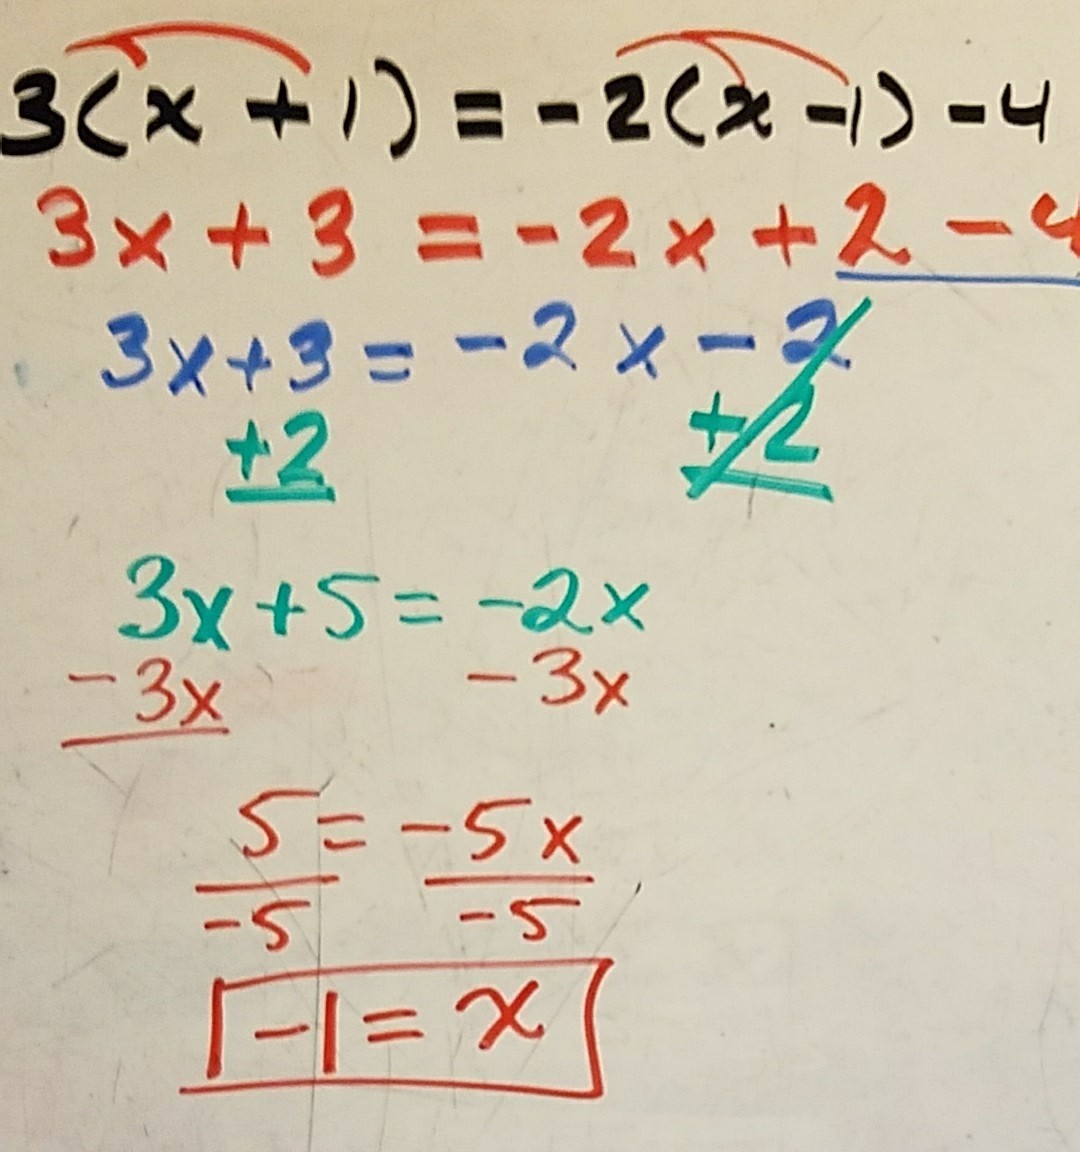 3(x + 1) = -2(x -1) -4
3x + 3 = -2x + 2 - 4
3x+3 = -2x - 2
+2 +2
3x +5 = -2x
-3x -3x
5 = -5x
-5 -5
-1 = x